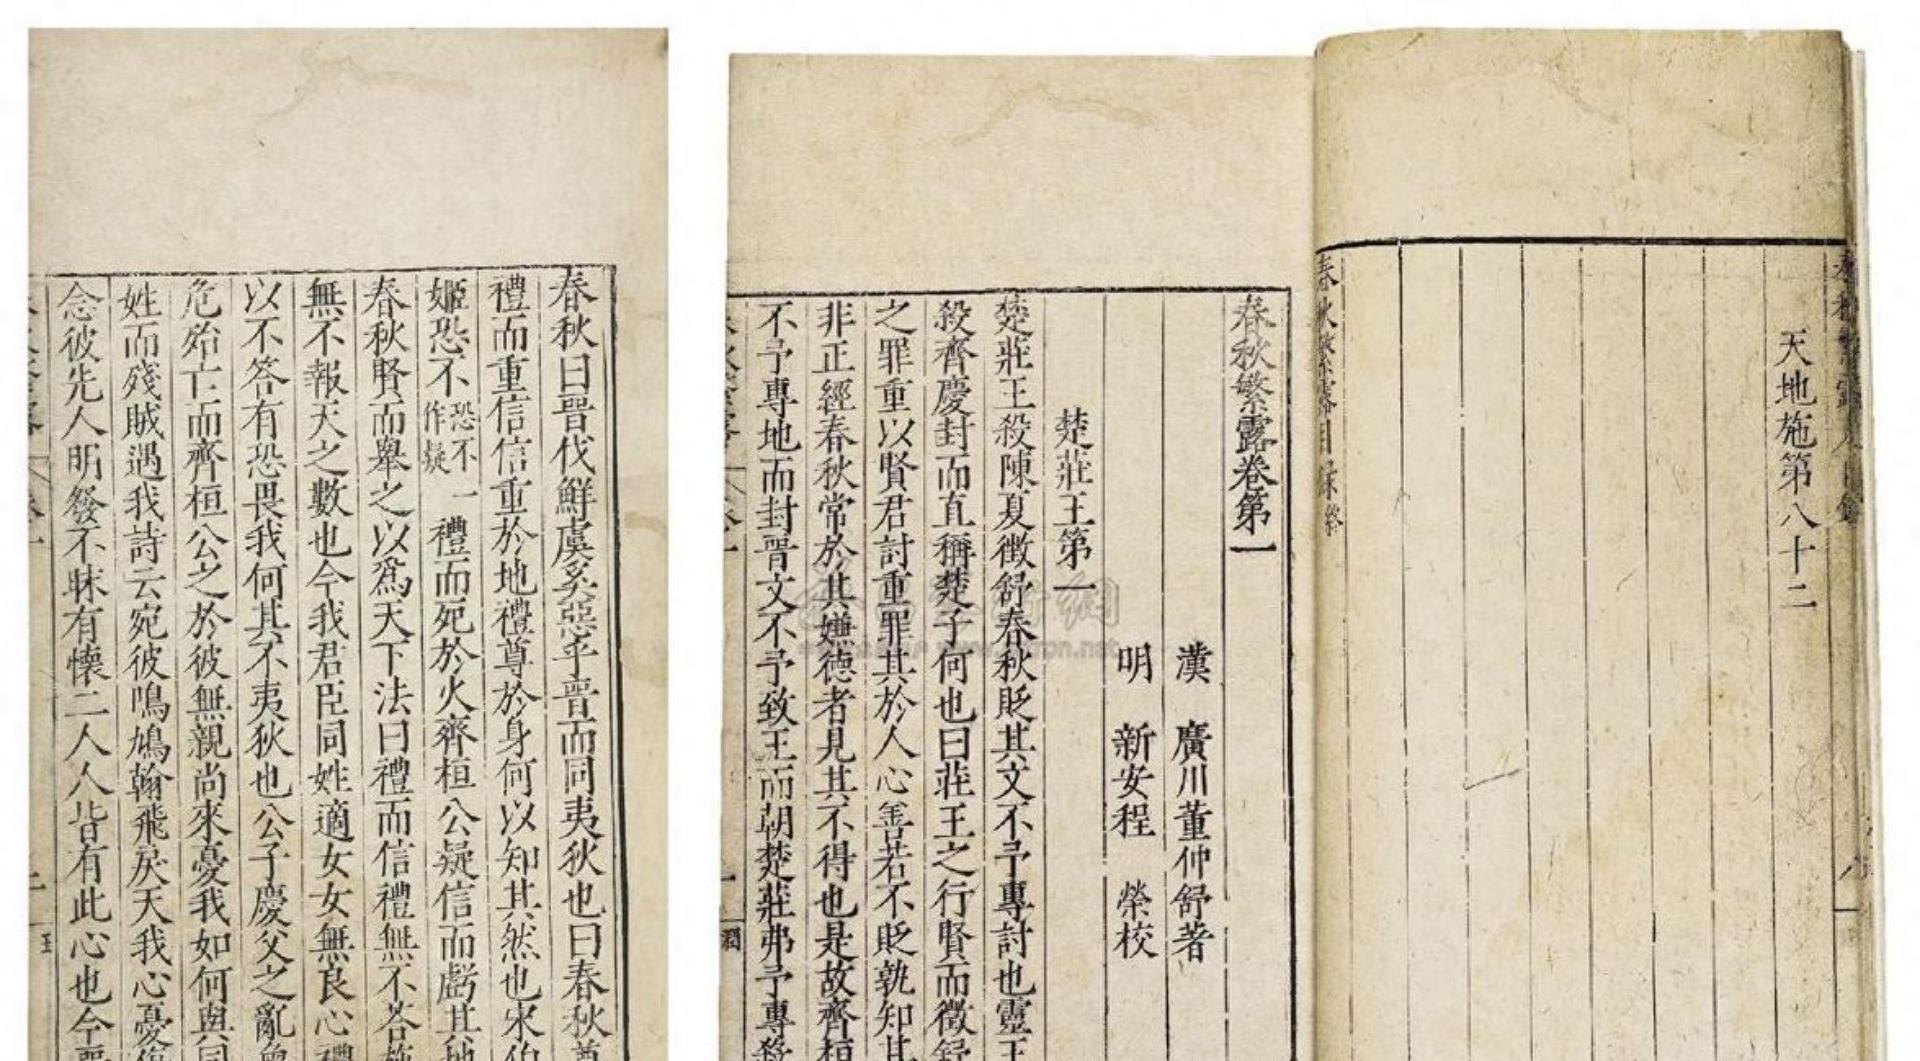 天地施第八十二
春秋繁露目錄終
春秋繁露卷第一
漢 廣川董仲舒著
明 新安程 榮校
楚莊王第一
楚莊王殺陳夏徵舒春秋貶其文不予專討也靈王
殺齊慶封而直稱楚子何也曰莊王之行賢而徵舒
之罪重以賢君討重罪其於人心善若不貶孰知其
非正經春秋常於其嫌德者見其不得也是故齊桓
不予專地而封晋文不予致王而朝楚莊弗予專殺
春秋曰晋伐鮮虞奚惡乎晋而同夷狄也曰春秋尊
禮而重信信重於地禮尊於身何以知其然也宋伯
姬恐不恐不作疑一禮而死於火齊桓公疑信而虧其地
春秋賢而舉之以爲天下法曰禮而信禮無不荅施
無不報天之數也今我君臣同姓適女女無良心禮
以不答有恐畏我何其不夷狄也公子慶父之亂魯
危殆亡而齊桓公之於彼無親尚來憂我如何與同
姓而殘賊遇我詩云宛彼鳴鳩翰飛戾天我心憂傷
念彼先人明發不昧有懷二人人皆有此心也今晋